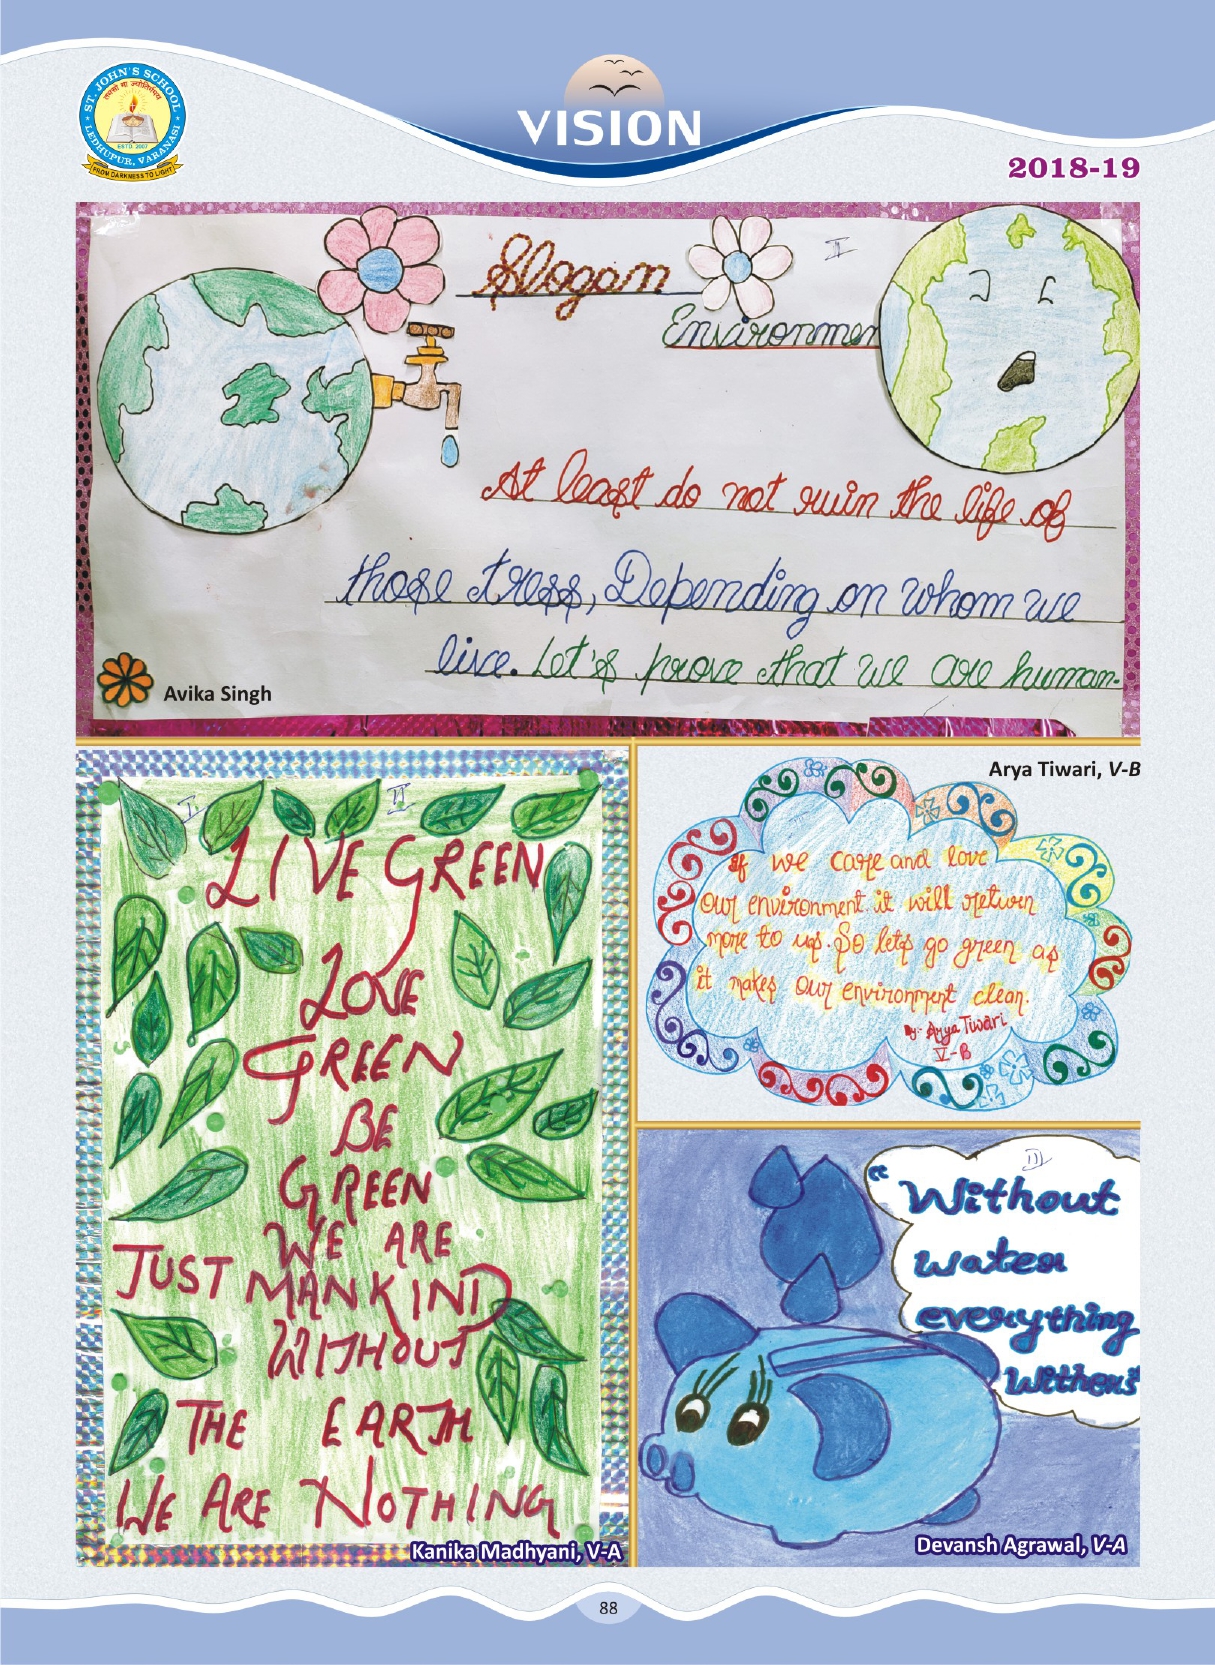 ST. JOHN'S SCHOOL
तमसो मा ज्योतिर्गमय
ESTD. 2007
LEDHUPUR, VARANASI
FROM DARKNESS TO LIGHT
VISION
2018-19
Slogan
II
Environmen
At least do not ruin the life of
those tress, Depending on whom we
live. Let's prove that we are human.
Avika Singh
LIVE GREEN
LOVE
GREEN
BE
GREEN
WE ARE
JUST MANKIND
WITHOUT
THE EARTH
WE ARE NOTHING
Kanika Madhyani, V-A
Arya Tiwari, V-B
If we care and love
our environment it will return
more to us. So lets go green as
it makes our environment clean.
By:- Arya Tiwari
V-B
III
"Without
water
everything
withers"
Devansh Agrawal, V-A
88